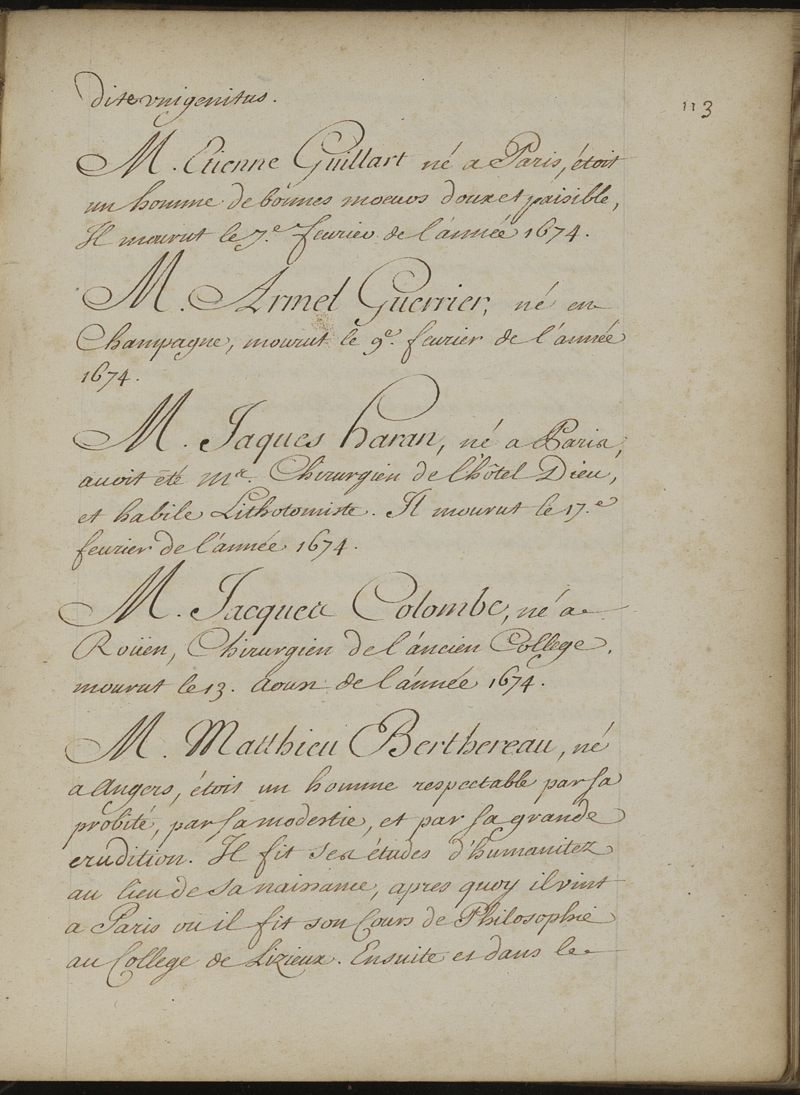 dite unigenitus.
113
M. Etienne Guillart né a Paris, étoit
un homme de bonnes moeurs doux et paisible,
Il mourut le 7.e feurier de l'année 1674.
M. Armel Guerrier, né en
Champagne, mourut le 9.e feurier de l'année
1674.
M. Jaques haran, né a Paris,
auoit été me. Chirurgien de l'hôtel Dieu,
et habile Lithotomiste. Il mourut le 17.e
feurier de l'année 1674.
M. Jacques Colombe, né a
Roüen, Chirurgien de l'áncien College,
mourut le 13. Aoust de l'ánnée 1674.
M. Matthieu Berthereau, né
a Angers, étois un homme respectable par sa
probité, par sa modestie, et par sa grande
erudition. Il fit ses études d'humanitez
au lieu de sa naissance, apres quoy il vint
a Paris ou il fit son Cours de Philosophie
au College de Lizieux. Ensuite et dans le